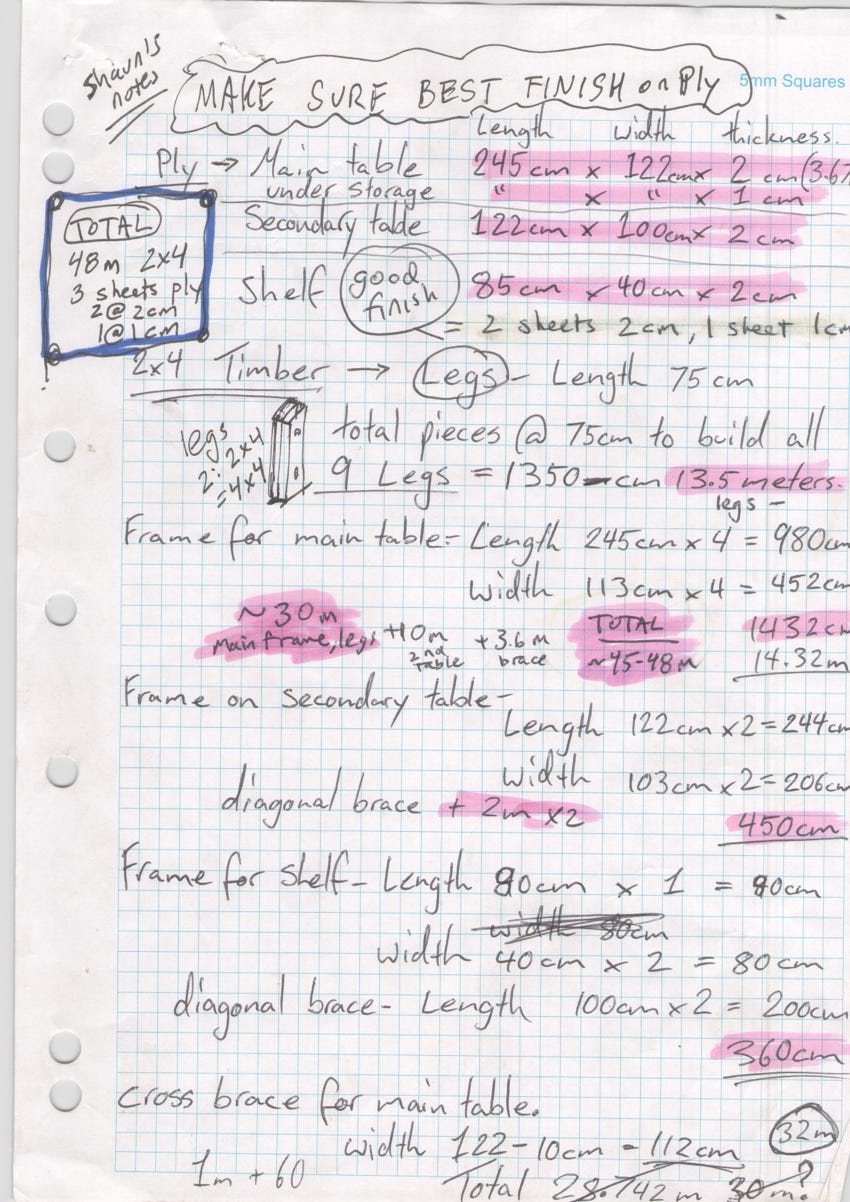 Shaun's notes
MAKE SURE BEST FINISH on Ply
5mm Squares
Length width thickness.
Ply → Main table 245cm x 122cm x 2 cm (3.67
under storage " x " x 1 cm
Secondary table 122cm x 100cm x 2cm
Shelf good finish 85cm x 40cm x 2cm
= 2 sheets 2cm, 1 sheet 1cm
TOTAL
48m 2x4
3 sheets ply
2 @ 2cm
1 @ 1cm
2x4 Timber → Legs - Length 75cm
legs 2x4
2: = 4x4
total pieces @ 75cm to build all
9 Legs = 1350 cm 13.5 meters.
legs -
Frame for main table = Length 245cm x 4 = 980cm
width 113cm x 4 = 452cm
1432cm
14.32m
~30m
main frame, legs
+10m
2nd table
+3.6m
brace
TOTAL
~45-48m
Frame on secondary table -
Length 122cm x2 = 244cm
width 103cm x2 = 206cm
diagonal brace + 2m x2
450cm
Frame for shelf - Length 80cm x 1 = 80cm
width 80cm
width 40cm x 2 = 80cm
diagonal brace - Length 100cm x 2 = 200cm
360cm
cross brace for main table.
width 122 - 10cm - 112cm
32m
1m + 60
Total 42m 30m?